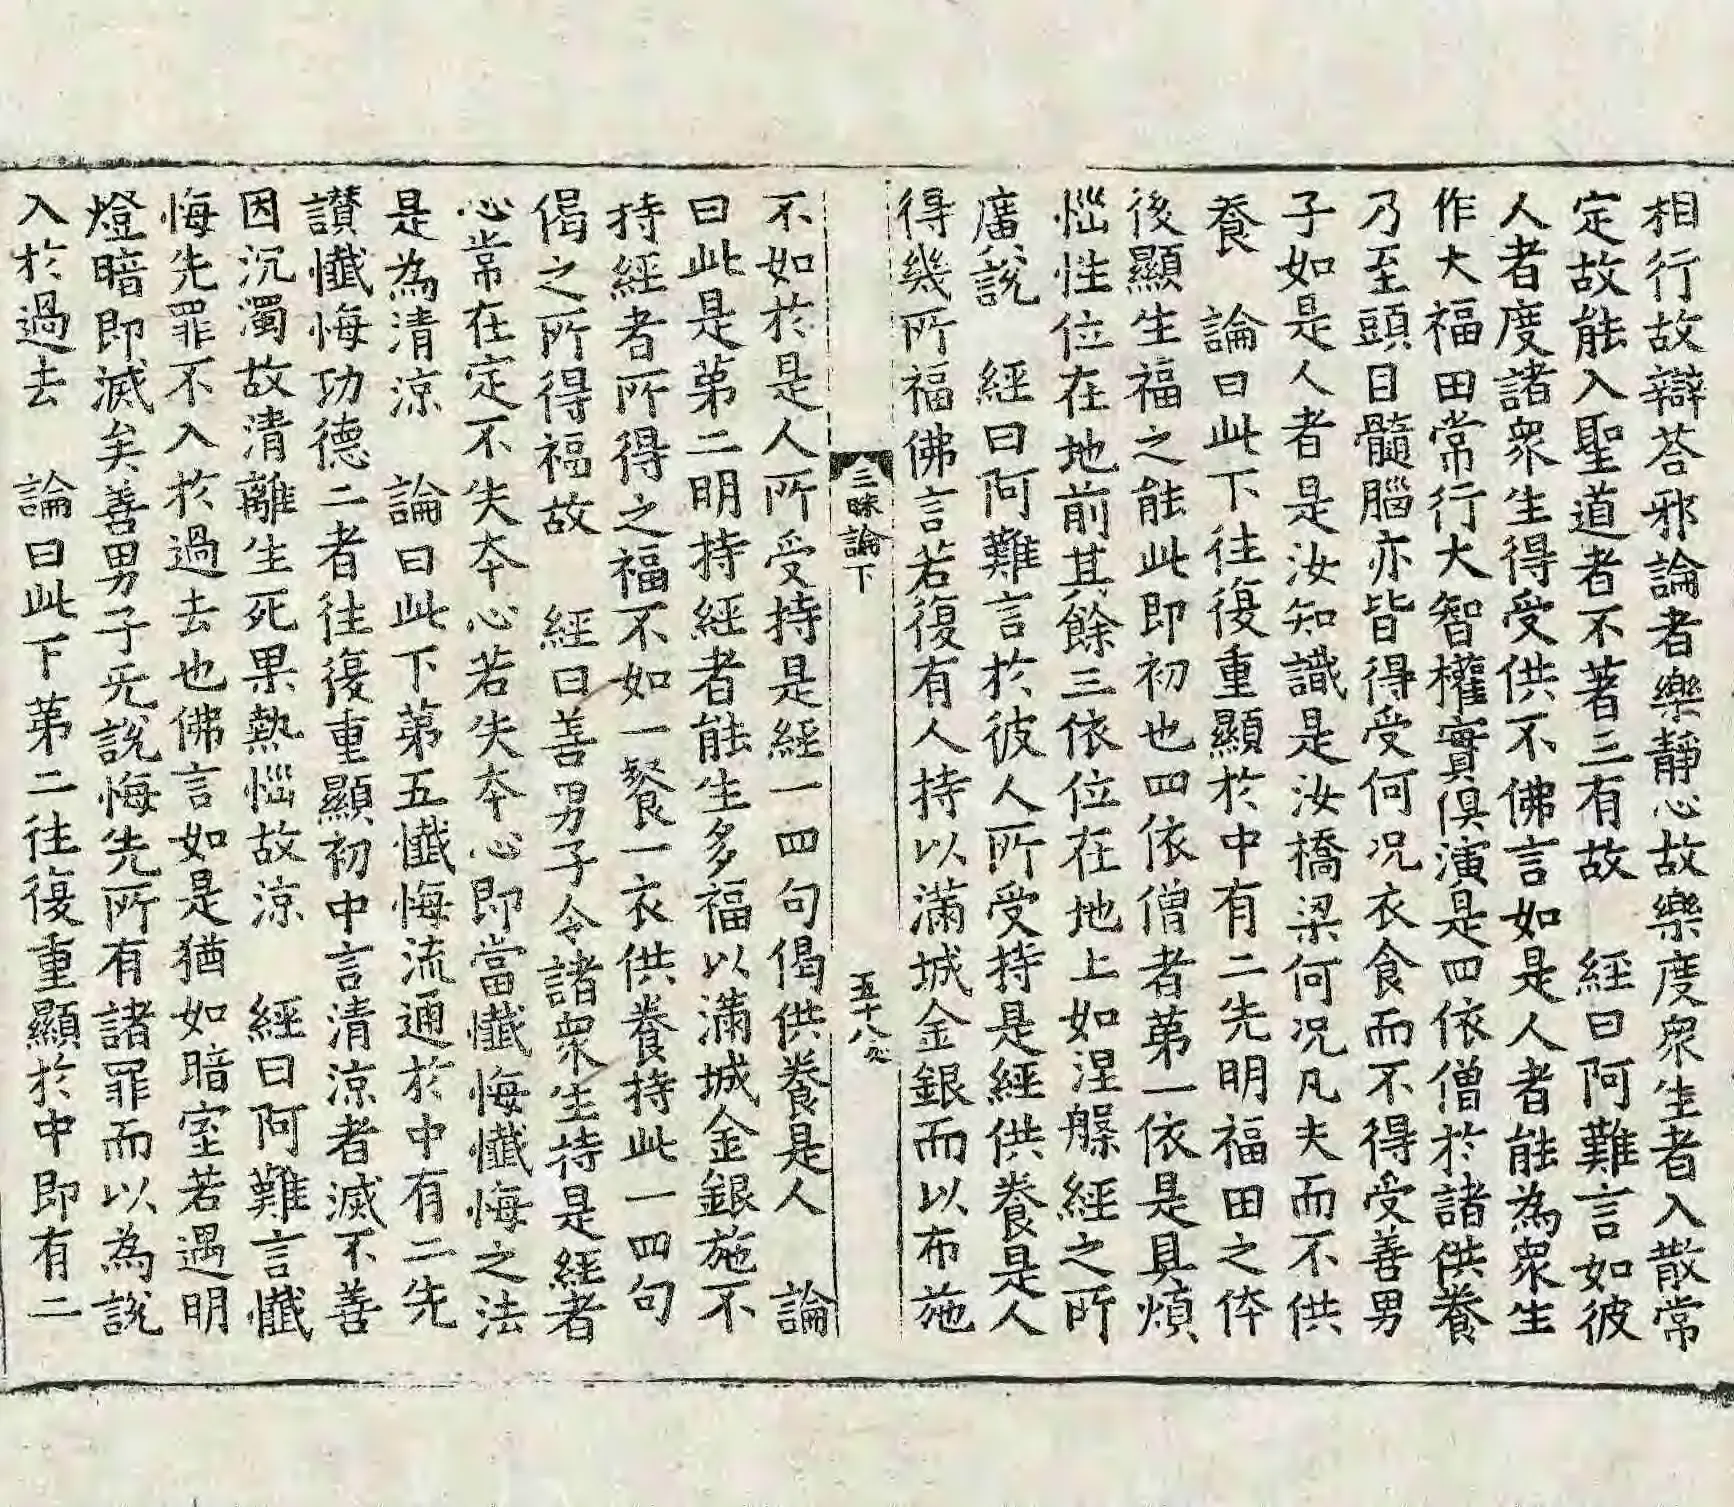 相行故辯荅邪論者樂靜心故樂度衆生者入散常
定故能入聖道者不著三有故　經曰阿難言如彼
人者度諸衆生得受供不佛言如是人者能為衆生
作大福田常行大智權實俱演是四依僧於諸供養
乃至頭目髓腦亦皆得受何況衣食而不得受善男
子如是人者是汝知識是汝橋梁何況凡夫而不供
養　論曰此下往復重顯於中有二先明福田之体
後顯生福之能此即初也四依僧者第一依是具煩
惱性位在地前其餘三依位在地上如涅槃經之所
廣說　經曰阿難言於彼人所受持是經供養是人
得幾所福佛言若復有人持以滿城金銀而以布施
三昧論下
五十八
不如於是人所受持是經一四句偈供養是人　論
曰此是第二明持經者能生多福以滿城金銀施不
持經者所得之福不如一飡一衣供養持此一四句
偈之所得福故　經曰善男子令諸衆生持是經者
心常在定不失夲心若失夲心即當懺悔懺悔之法
是為清涼　論曰此下第五懺悔流通於中有二先
讃懺悔功德二者往復重顯初中言清涼者滅不善
因沉濁故清離生死果熱惱故涼　經曰阿難言懺
悔先罪不入於過去也佛言如是猶如暗室若遇明
燈暗即滅矣善男子无說悔先所有諸罪而以為說
入於過去　論曰此下第二往復重顯於中即有二